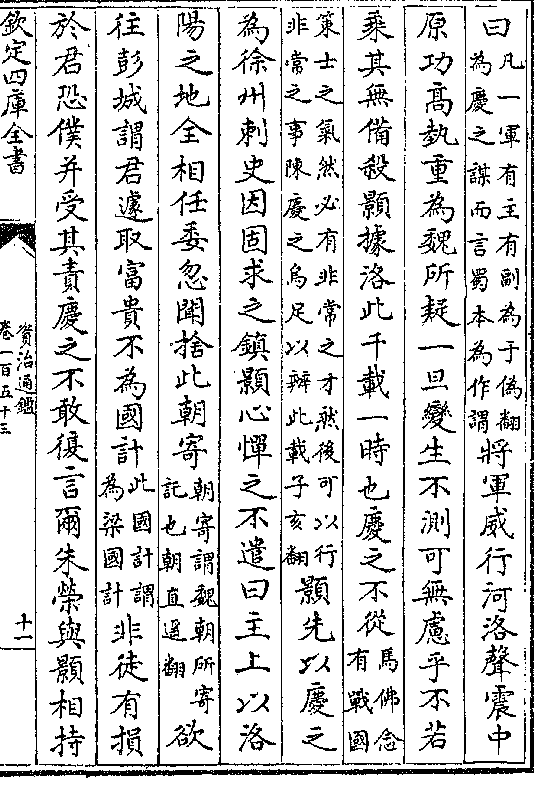 曰凡一軍有主有副為于偽翻
為慶之謀而言蜀本為作謂將軍威行河洛聲震中
原功高埶重為魏所疑一旦變生不測可無慮乎不若
乘其無備殺顥據洛此千載一時也慶之不從馬佛念
有戰國
策士之氣然必有非常之才然後可以行
非常之事陳慶之烏足以辦此載子亥翻顥先以慶之
為徐州刺史因固求之鎮顥心憚之不遣曰主上以洛
陽之地全相任委忽聞捨此朝寄朝寄謂魏朝所寄
託也朝直遥翻欲
往彭城謂君遽取富貴不為國計此國計謂
為梁國計非徒有損
於君恐僕并受其責慶之不敢復言爾朱榮與顥相持
欽定四庫全書
資治通鑑
卷一百五十三
十一